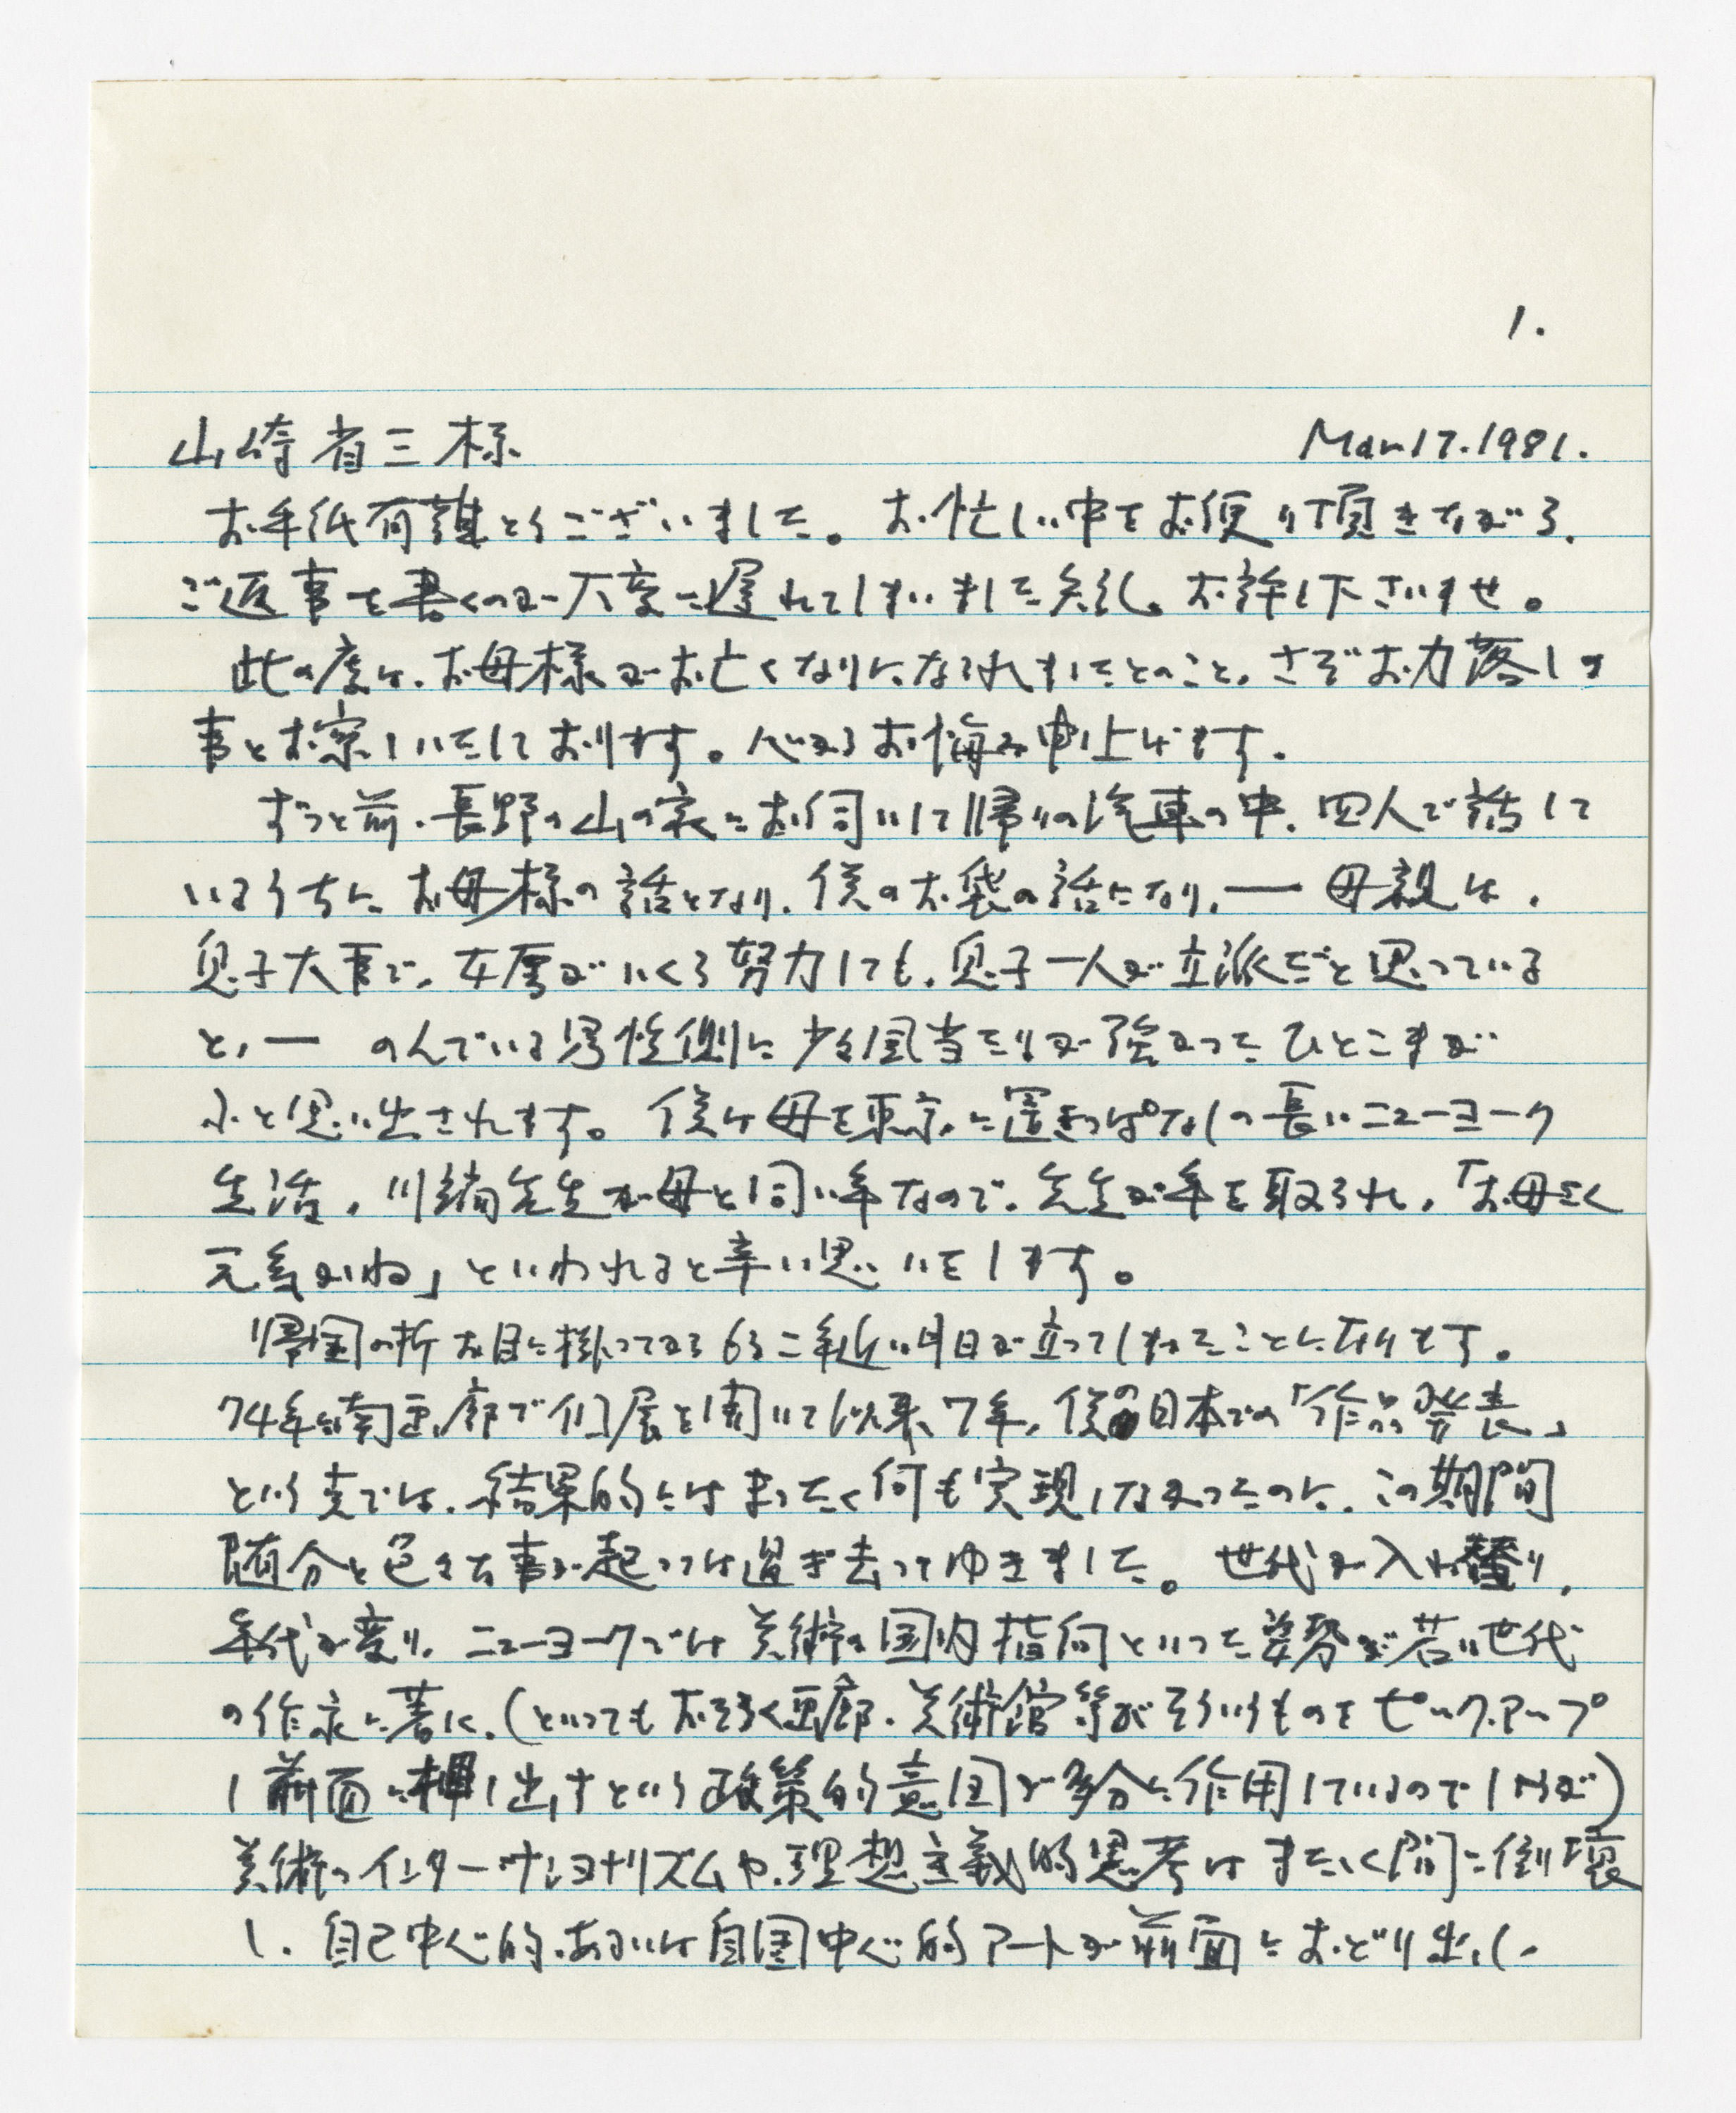 1.
山崎省三様 Mar 17. 1981.
お手紙有難とうございました。お忙しい中をお便り頂きながら、
ご返事を書くのが大変に遅れてしまいました失礼。お許し下さいませ。
此の度は、お母様がお亡くなりになられましたとのこと、さぞお力落しの
事とお察しいたしております。心からお悔み申上げます。
ずっと前、長野の山の家にお伺いして帰りの汽車の中、四人で話して
いるうちに、お母様の話となり、僕のお袋の話になり、— 母親は、
息子大事で、女房がいくら努力しても、息子一人が立派だと思っている
と、— のんでいる男性側に少々風当たりが強かったひとこまが
ふと思い出されます。僕は母を東京に置きっぱなしの長いニューヨーク
生活、川端先生が母と同い年なので、先生が年を取られ、「お母さん
元気かね」といわれると辛い思いをします。
帰国の折お目に掛ってからもう二年近い月日が立ってしまったことになります。
74年に南画廊で個展を開いて以来、7年、僕の日本での「作品発表」
という点では、結果的にはまったく何も実現しなかったのに、この期間
随分と色々な事が起っては過ぎ去ってゆきました。世代が入れ替り、
年代が変り、ニューヨークでは美術の国内指向といった姿勢が若い世代
の作家に著く、(といってもおそらく画廊、美術館等がそういうものをピックアップ
し前面に押し出すという政策的意図が多分に作用しているのでしょうが)
美術のインターナショナリズムや、理想主義的思考はまたたく間に倒壊
し、自己中心的、あるいは自国中心的アートが前面におどり出し、